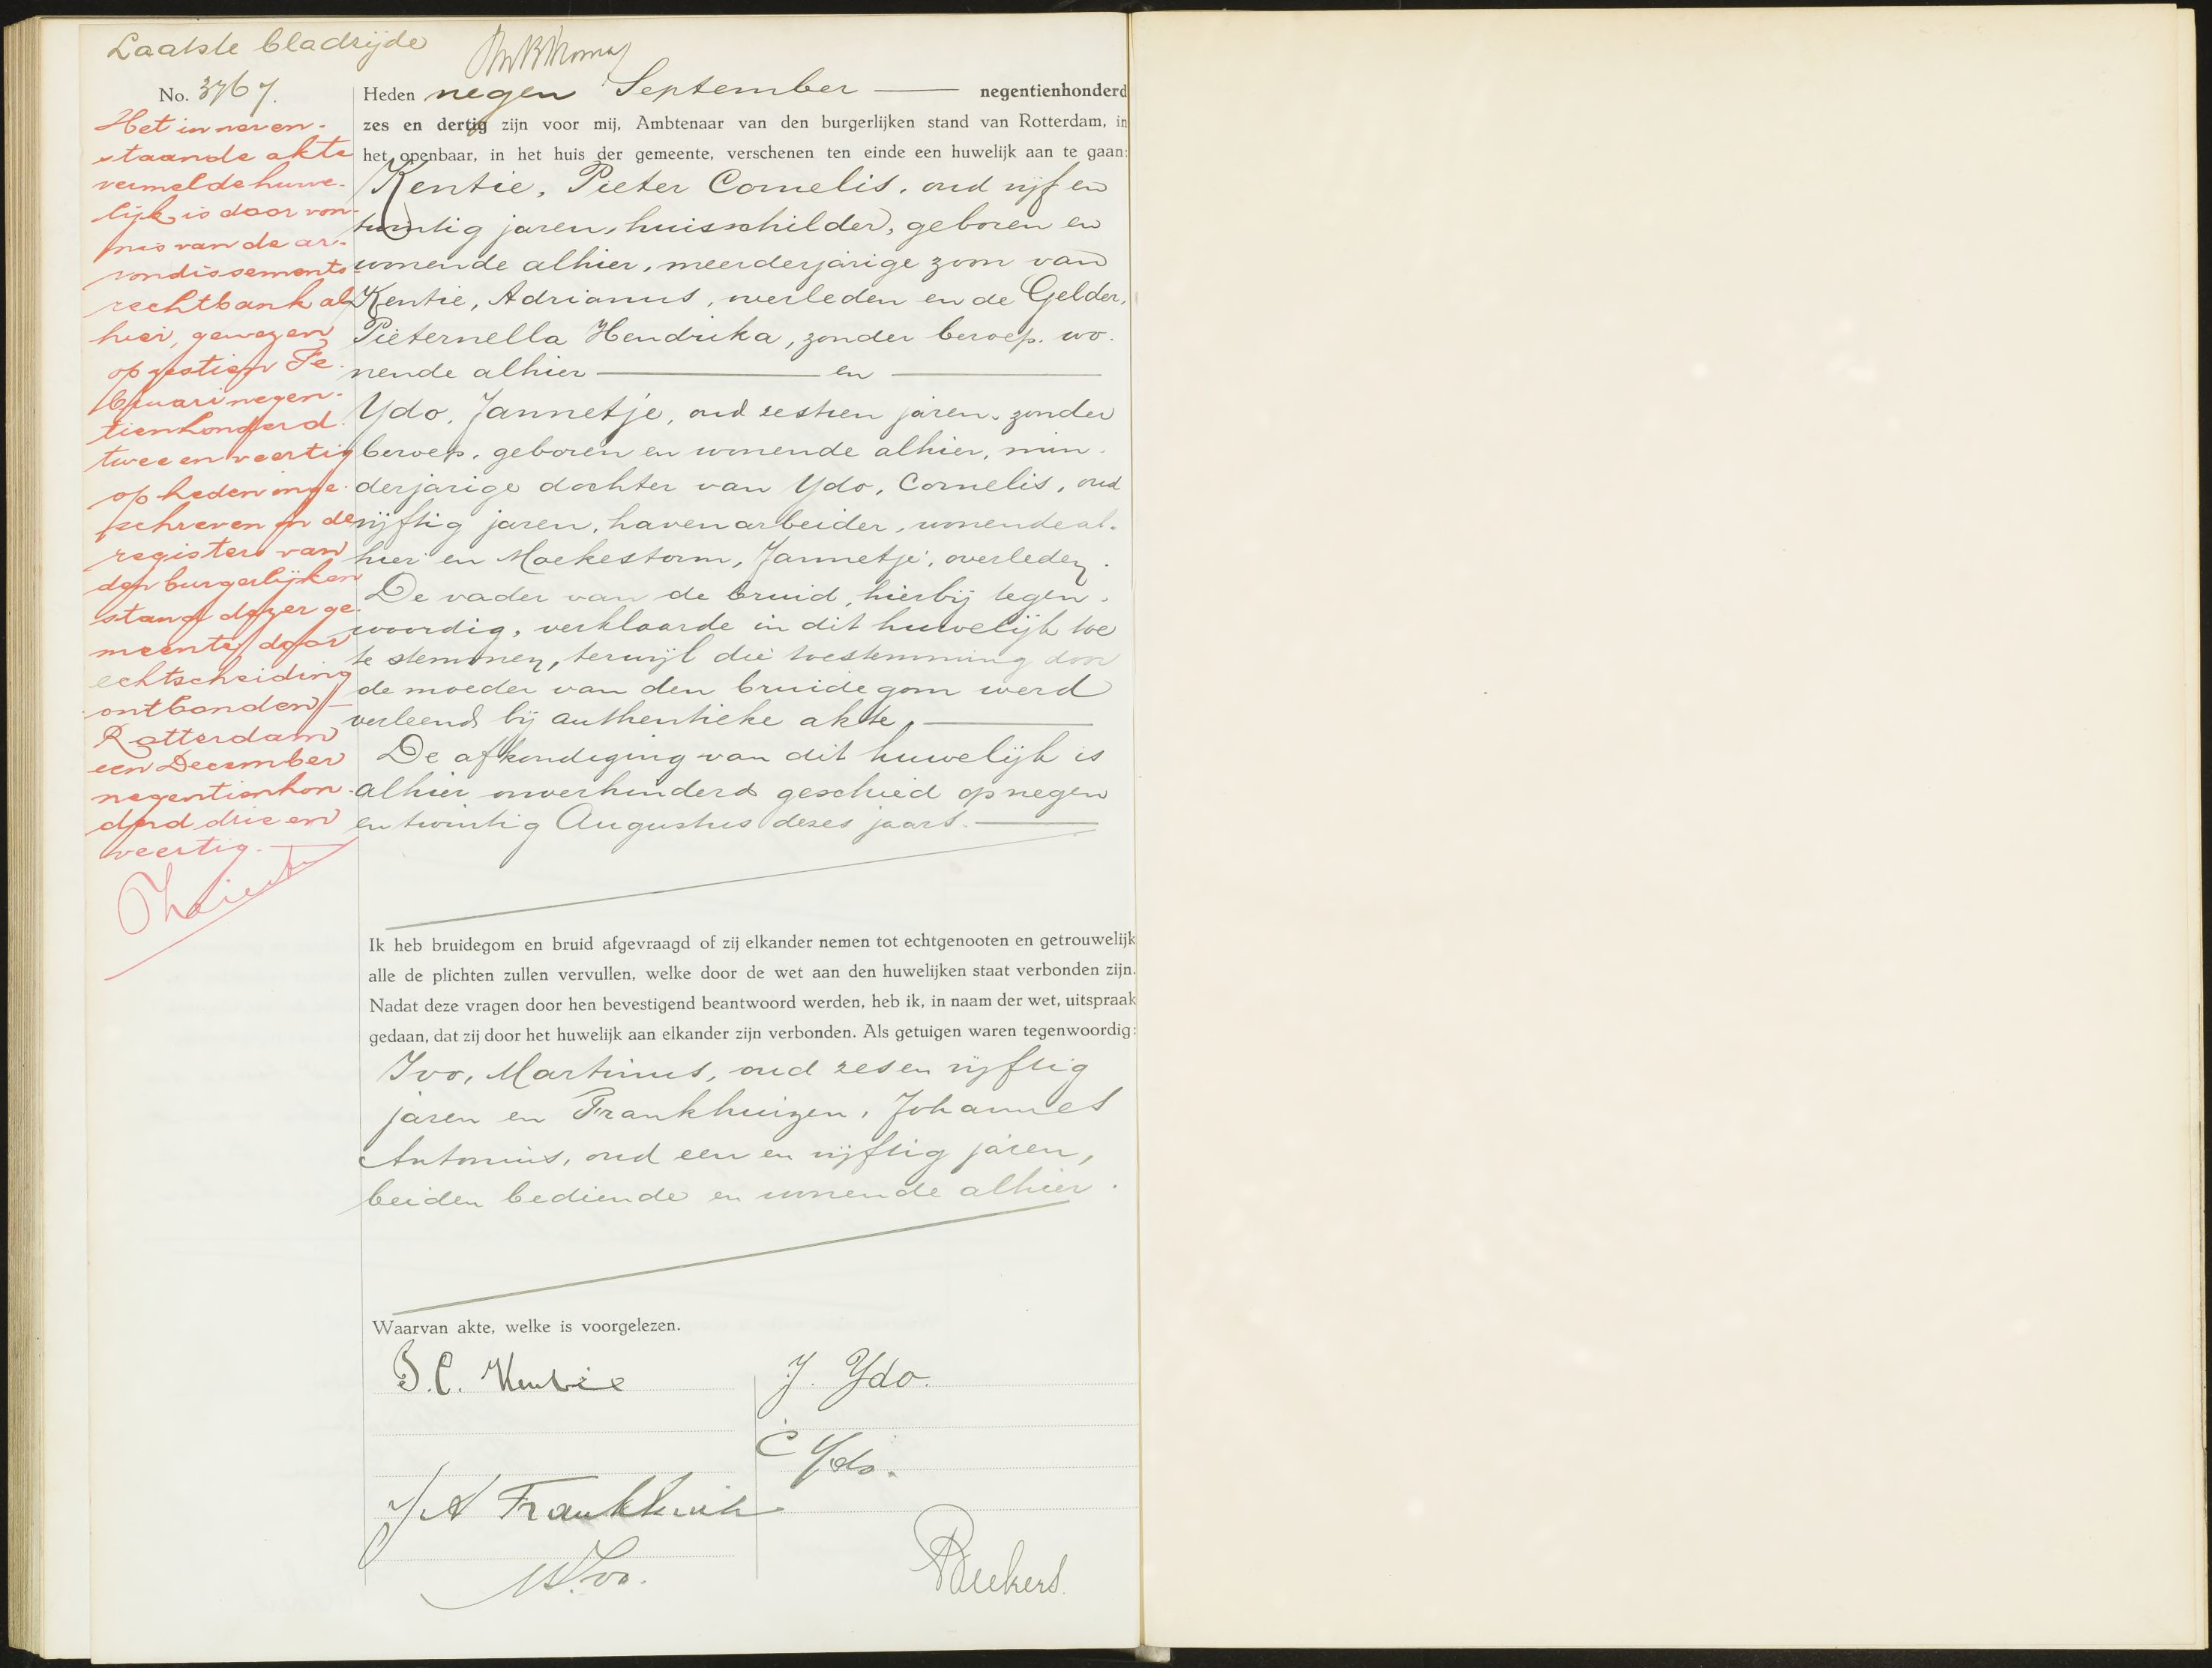 Laatste bladzijde
No. 3767.
Het in neven-
staande akte
vermelde huwe-
lijk is door von-
nis van de ar-
rondissements-
rechtbank al-
hier, gewezen
op zestien Fe-
bruari negen-
tienhonderd
twee en veertig
op heden inge-
schreven in de
registers van
den burgerlijken
stand dezer ge-
meente, door
echtscheiding
ontbonden. —
Rotterdam
een December
negentienhon-
derd drie en
veertig. —
Heden negen September — negentienhonderd
zes en dertig zijn voor mij, Ambtenaar van den burgerlijken stand van Rotterdam, in
het openbaar, in het huis der gemeente, verschenen ten einde een huwelijk aan te gaan:
Kentie, Pieter Cornelis, oud vijf en
twintig jaren, huisschilder, geboren en
wonende alhier, meerderjarige zoon van
Kentie, Adrianus, overleden en de Gelder,
Pieternella Hendrika, zonder beroep, wo-
nende alhier — en —
Ydo, Jannetje, oud zestien jaren, zonder
beroep, geboren en wonende alhier, min-
derjarige dochter van Ydo, Cornelis, oud
vijftig jaren, havenarbeider, wonende al-
hier en Moekestorm, Jannetje, overleden.
De vader van de bruid, hierbij tegen-
woordig, verklaarde in dit huwelijk toe
te stemmen, terwijl die toestemming door
de moeder van den bruidegom werd
verleend bij authentieke akte. —
De afkondiging van dit huwelijk is
alhier onverhinderd geschied op negen
en twintig Augustus dezes jaars. —
Ik heb bruidegom en bruid afgevraagd of zij elkander nemen tot echtgenooten en getrouwelijk
alle de plichten zullen vervullen, welke door de wet aan den huwelijken staat verbonden zijn.
Nadat deze vragen door hen bevestigend beantwoord werden, heb ik, in naam der wet, uitspraak
gedaan, dat zij door het huwelijk aan elkander zijn verbonden. Als getuigen waren tegenwoordig:
Ivo, Martinus, oud zes en vijftig
jaren en Frankhuizen, Johannes
Antonius, oud een en vijftig jaren,
beiden bediende en wonende alhier.
Waarvan akte, welke is voorgelezen.
P.C. Kentie
J. Ydo.
C Ydo.
J A Frankhuiz
M. Ivo.